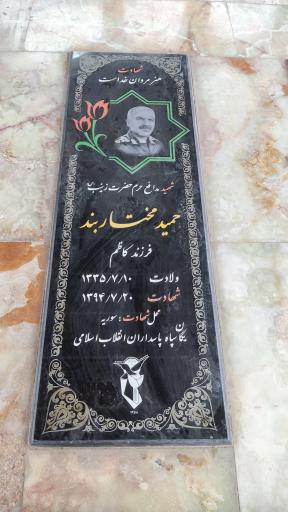 شهادت
هنر مردان خداست
شهید مدافع حرم حضرت زینب
حمید مختاربند
فرزند کاظم
ولادت ۱۳۳۵/۷/۱۰
شهادت ۱۳۹۴/۷/۲۰
محل شهادت : سوریه
یگان سپاه پاسداران انقلاب اسلامی